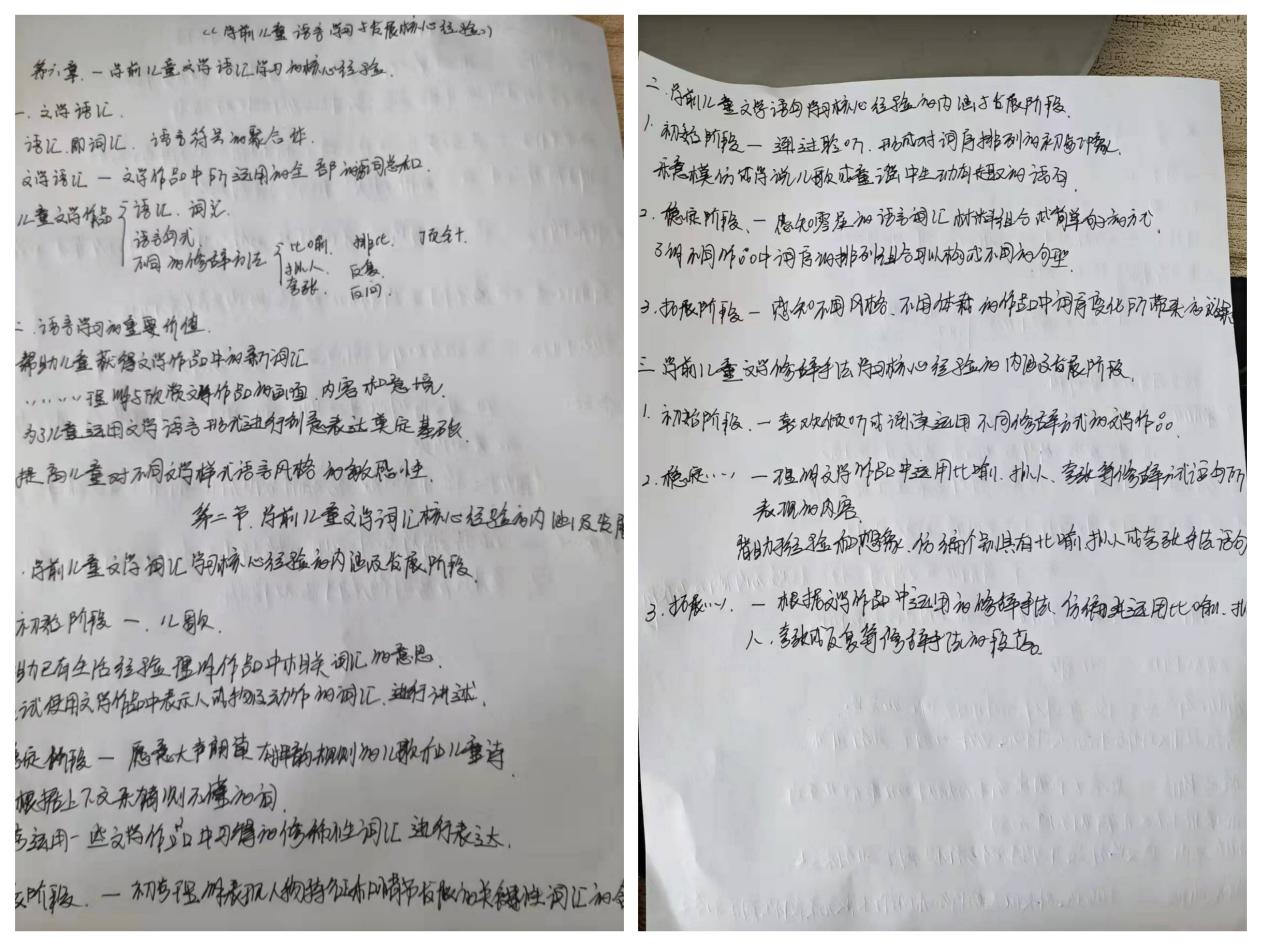 《学前儿童语言学习与发展核心经验》
第六章.一学前儿童文学语汇学习的核心经验.
一.文学语汇.
语汇.即词汇.语言符号的聚合体.
文学语汇一文学作品中所运用的全部的词总和.
儿童文学作品 语汇.词汇.
语言句式.
不同的修辞方法 比喻. 排比. 顶针.
拟人. 反复.
夸张. 反问.
二.语言学习的重要价值.
帮助儿童获得文学作品中的新词汇
〃〃〃理解与欣赏文学作品的画面.内容和意境.
为儿童运用文学语言形式进行创意表达奠定基础.
提高儿童对不同文学样式语言风格的敏感性.
第二节.学前儿童文学词汇核心经验的内涵及发展
.学前儿童文学词汇学习核心经验的内涵及发展阶段.
初始阶段一.儿歌.
助已有生活经验理解作品中相关词汇的意思.
试使用文学作品中表示人或物及动作的词汇.进行讲述.
定阶段一愿意大声朗读有押韵规则的儿歌和儿童诗.
根据上下文来猜测不懂的词.
运用一些文学作品中习得的修饰性词汇进行表达.
阶段.一初步理解表现人物特征和情节发展的关键性词汇的含
二.学前儿童文学语句学习核心经验的内涵与发展阶段.
1.初始阶段一通过聆听.形成对词序排列的初步印象.
乐意模仿或学说儿歌或童谣中生动有趣的语句.
2.稳定阶段.一感知零星的语言词汇材料组合成简单句的方式
了解不同作品中词序的排列组合可以构成不同的句型.
3.拓展阶段一感知不同风格.不同体裁的作品中词序变化所带来的效果
三.学前儿童文学修辞手法学习核心经验的内涵及发展阶段.
1.初始阶段.一喜欢倾听或诵读运用不同修辞方式的文学作品.
2.稳定…一理解文学作品中运用比喻.拟人.夸张等修辞方式语句所
表现的内容
借助经验和想象.仿编个别具有比喻.拟人或夸张手法语句
3.拓展….一根据文学作品中运用的修辞手法.仿编并运用比喻.拟
人.夸张或反复等修辞手法的段落.